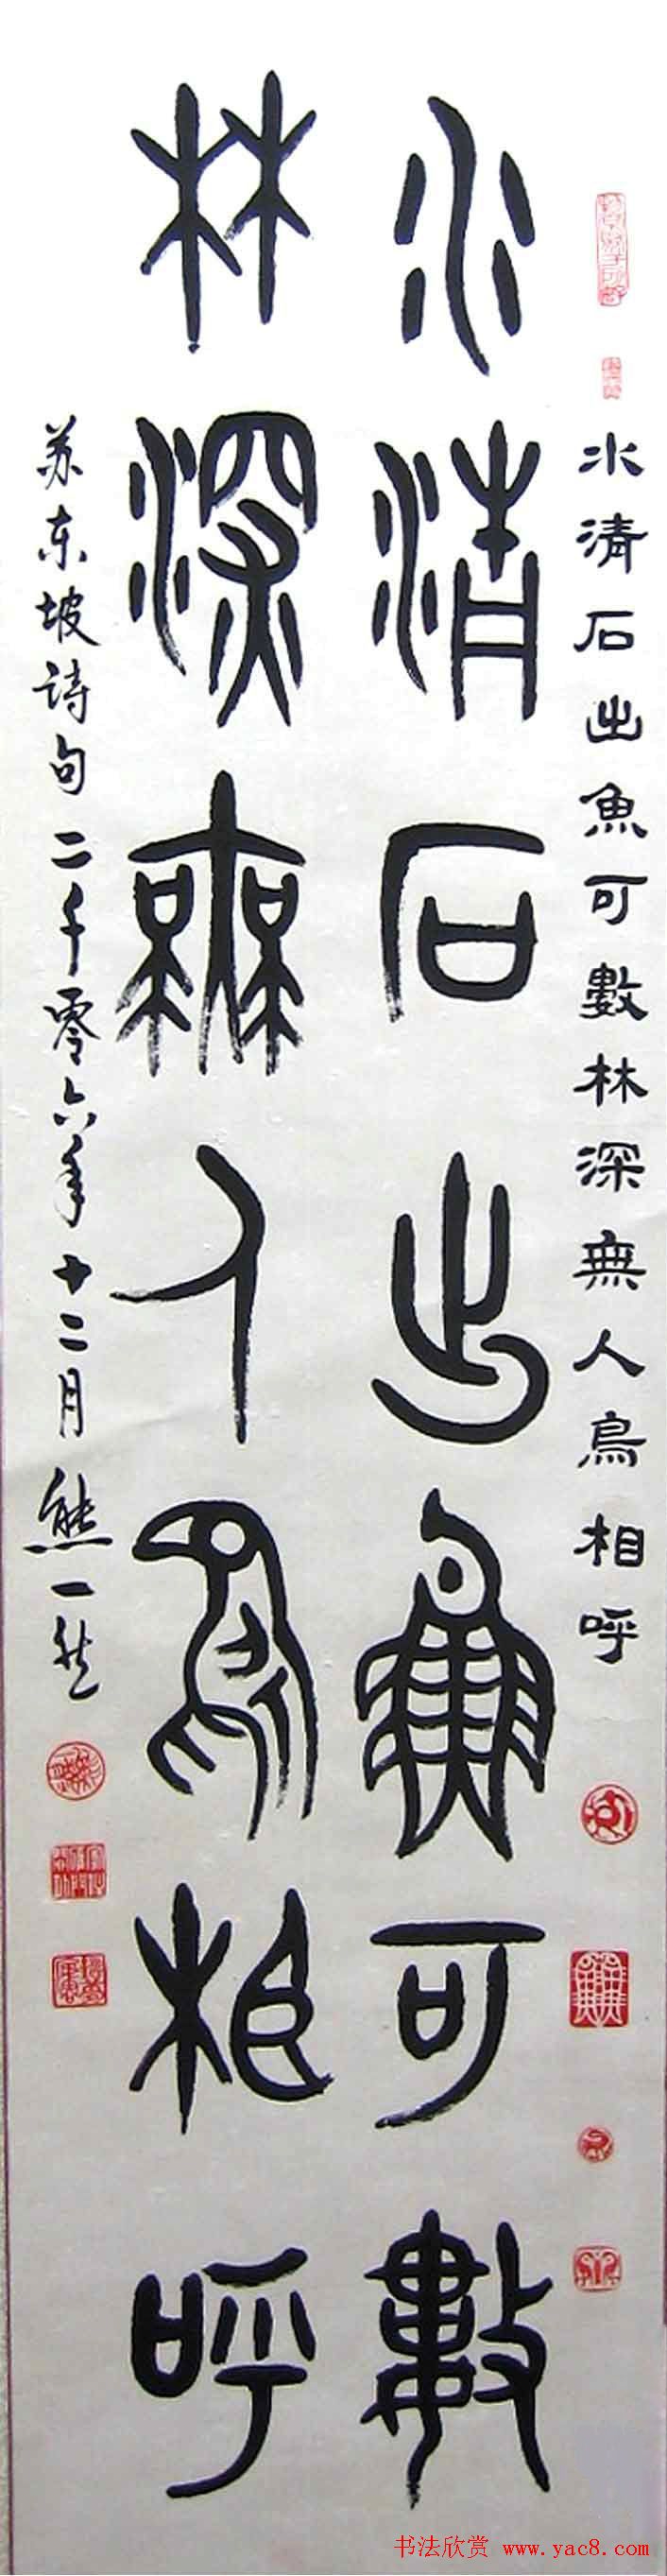 水清石出魚可數林深無人鳥相呼
水清石出魚可數
林深無人鳥相呼
苏东坡詩句二千零六年十二月熊一然
书法欣赏 www.yac8.com